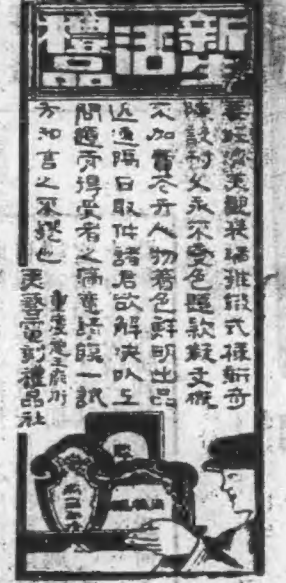 新生活禮品
經濟美觀裝璜雅緻式樣新奇
陳設耐久永不變色題款擬文概
不加費人物著色鮮明出品
迅速隔日取件諸君欲解決以上
問題而得受者之滿意請臨一試
方知言之不謬也
重慶街
美藝電刻禮品社